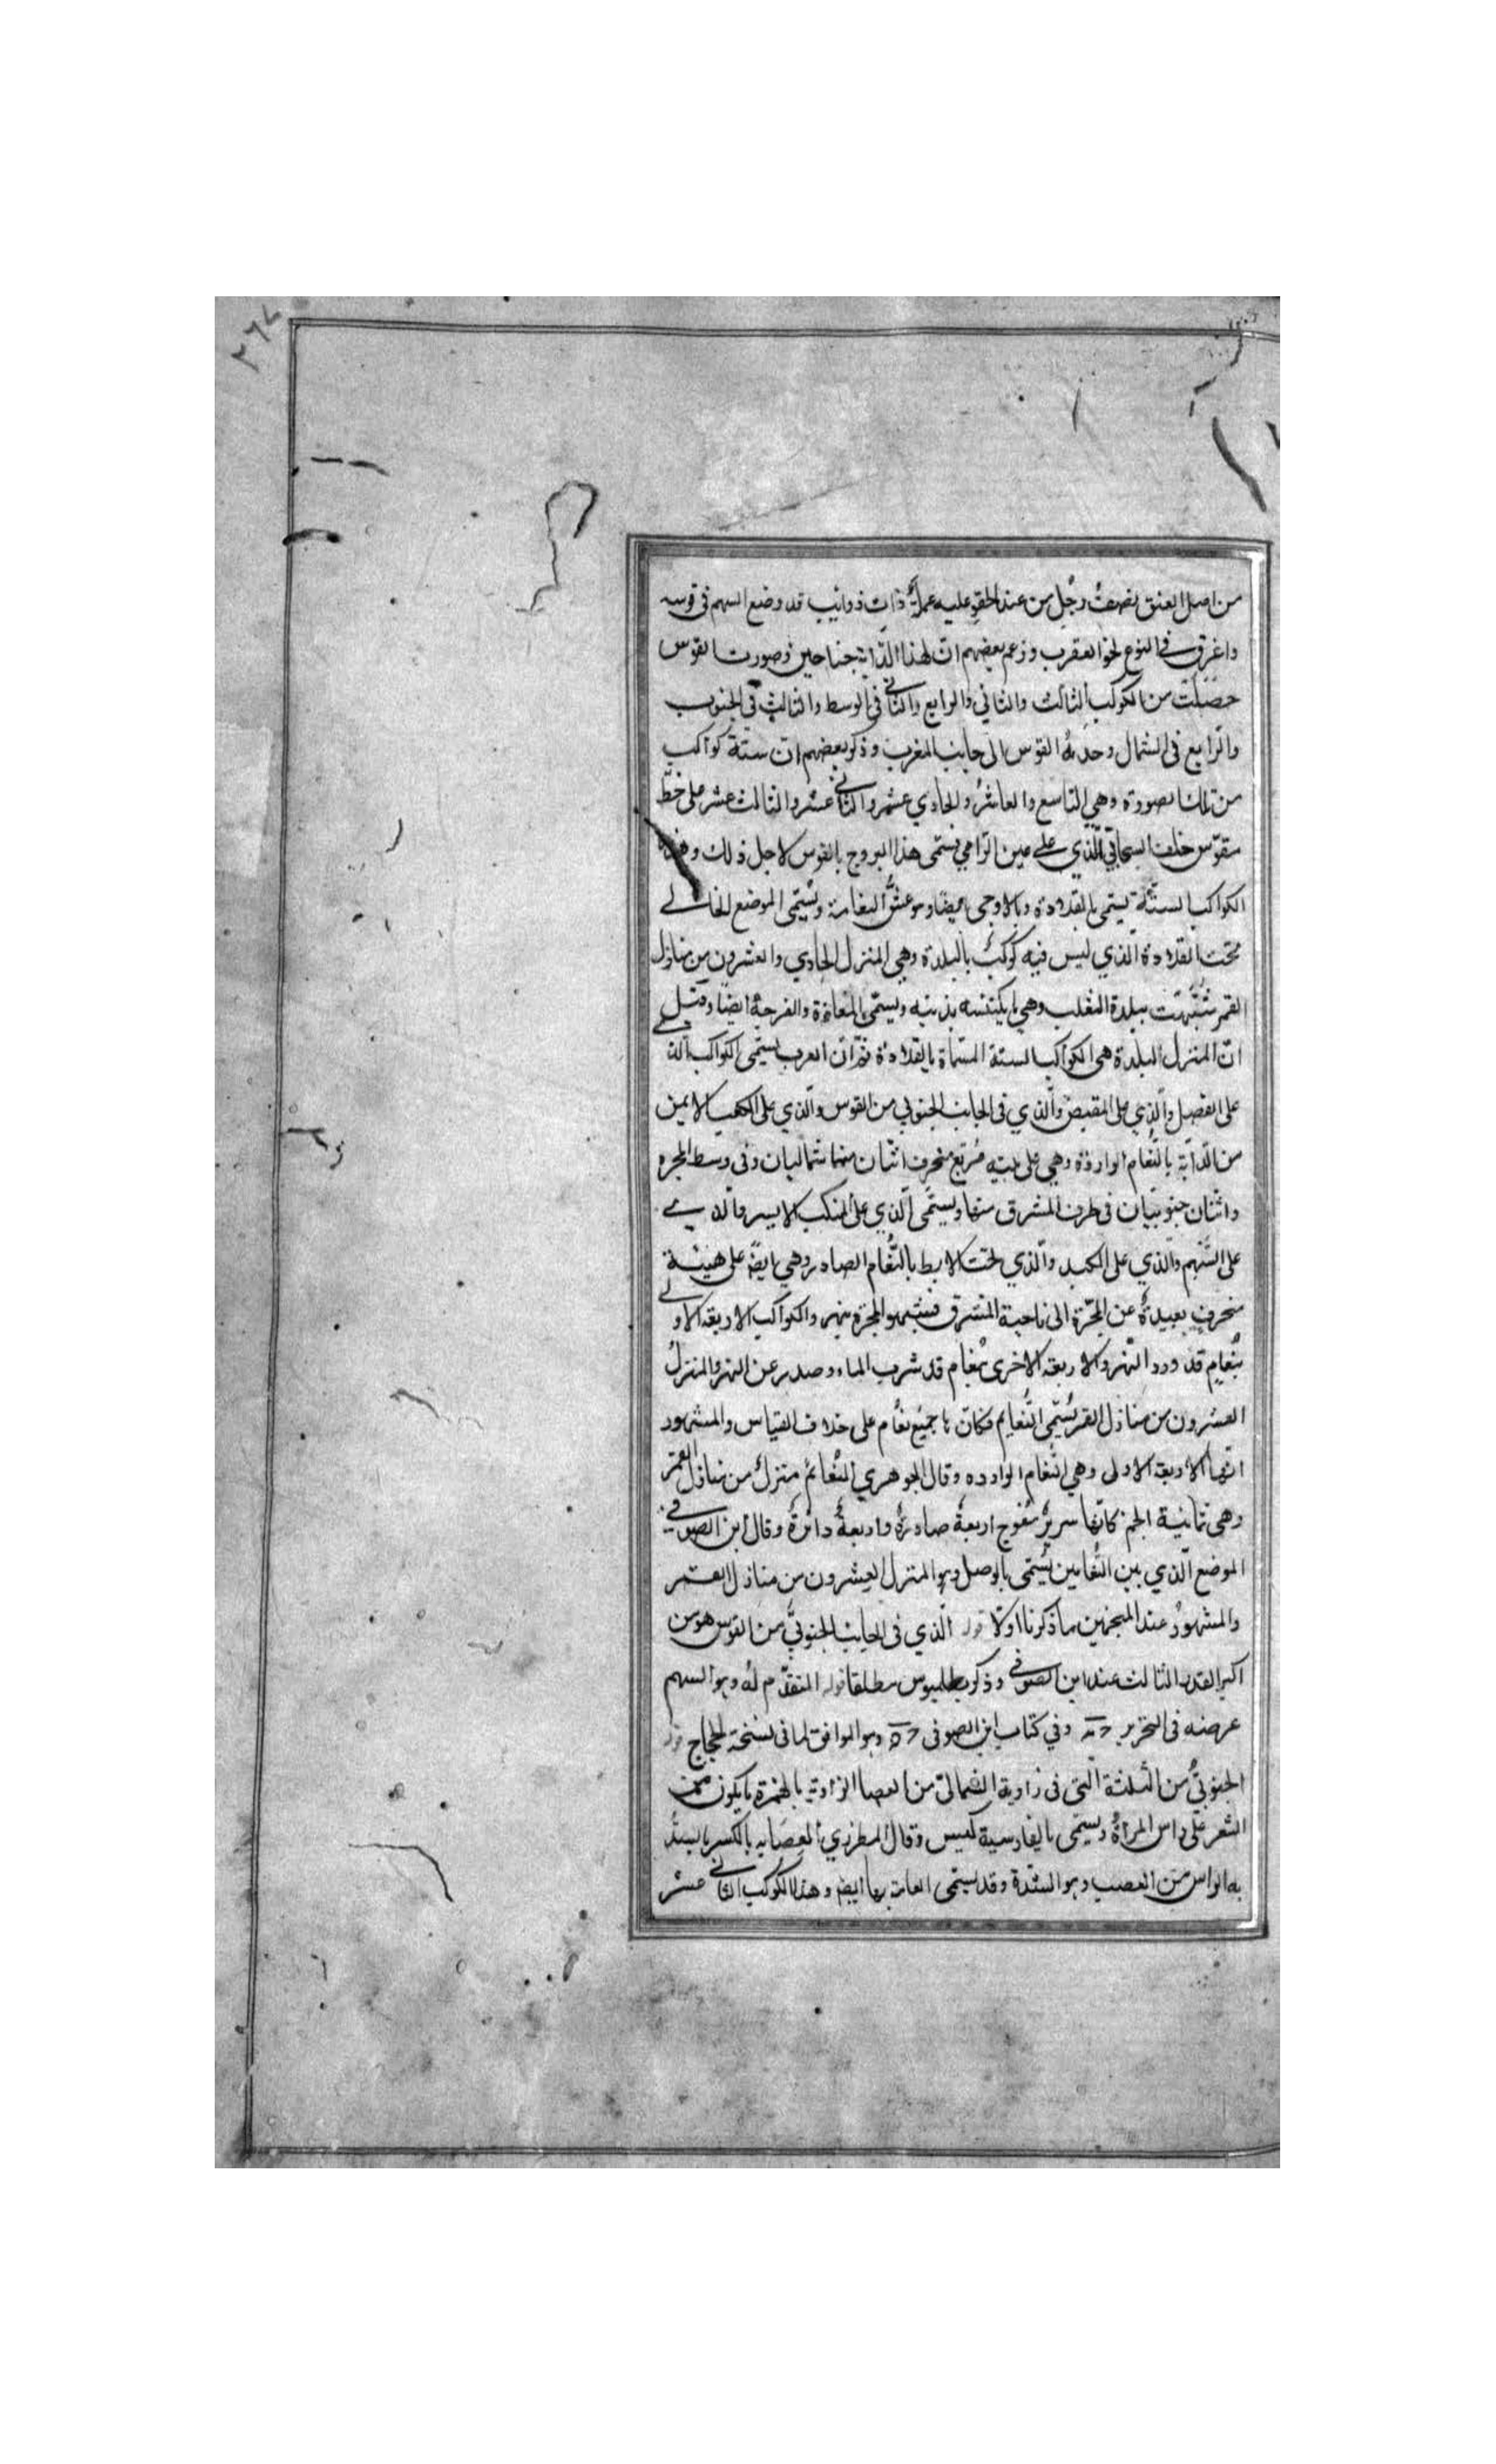 ٢٦٧
من اصل العنق نصف رجل من عند الحقو عليه عمامة ذات ذوائب قد وضع السهم في قوسه
واغرق في النزع نحو العقرب وزعم بعضهم ان لهذا الدابة جناحين وصورت القوس
حصلت من الكوكب الثالث والثاني والرابع والثاني في الوسط والثالث في الجنوب
والرابع في الشمال وحدبة القوس الى جانب المغرب وذكر بعضهم ان ستة كواكب
من تلك الصورة وهي التاسع والعاشر والحادي عشر والثاني عشر والثالث عشر على خط
مقوس خلف السحابي الذي على عين الرامي فسمى هذا البروج بالقوس لاجل ذلك وهذه
الكواكب الستة يسمى بالقلادة وبالاوحى ايضا وهو عش النعامة ويسمى الموضع الخالي
تحت القلادة الذي ليس فيه كوكب بالبلدة وهي المنزل الحادي والعشرون من منازل
القمر شبهت ببلدة الثعلب وهي ما يكتنسه بذنبه ويسمى بالمفازة والفرجة ايضا وقيل
ان المنزل البلدة هي الكواكب الستة المسماة بالقلادة ثم ان العرب يسمى الكواكب الذي
على النصل والذي على المقبض والذي في الجانب الجنوبي من القوس والذي على الكعب الايمن
من الدابة بالنعام الواردة وهي على هيئة مربع منحرف اثنان منها شماليان وفي وسط المجرة
واثنان جنوبيان في طرف المشرق منها ويسمى الذي على المنكب الايسر والذي
على السهم والذي على الكبد والذي تحت الابط بالنعام الصادر وهي ايضا على هيئة
منحرف بعيدة عن المجرة الى ناحية المشرق فشبهوا المجرة بنهر والكواكب الاربعة الاولى
بنعام قد ورد النهر والاربعة الاخرى بنعام قد شرب الماء وصدر عن النهر والمنزل
العشرون من منازل القمر يسمى النعايم فكان ما جميع نعام على خلاف القياس والمشهور
انها الاربعة الاولى وهي النعام الواردة وقال الجوهري النعائم منزل من منازل القمر
وهي ثمانية انجم كانها سرير معوج اربعة صادرة واربعة دائرة وقال ابن الصوفي
الموضع الذي بين النعامين يسمى بالوصل وهو المنزل العشرون من منازل القمر
والمشهور عند المنجمين ما ذكرنا اولا قوله الذي في الجانب الجنوبي من القوس هو من
اكبر القدر الثالث عند ابن الصوفي وذكر بطلميوس مطلقا قوله المتقدم له وهو السهم
عرضه في التحرير وفي كتاب ابن الصوفي وهو الموافق لما في نسخة الحجاج قوله
الجنوبي من الثلثة التي في زاوية الشمالي من العصا الزاوية بالحمزة ما يكون من
الشعر على راس المراة ويسمى بالفارسية كيس وقال المطرزي العصابة بالكسر ما يشد
به الراس من العصب وهو الشدة وقد يسمى العامة بها ايضا وهذا الكوكب الثاني عشر